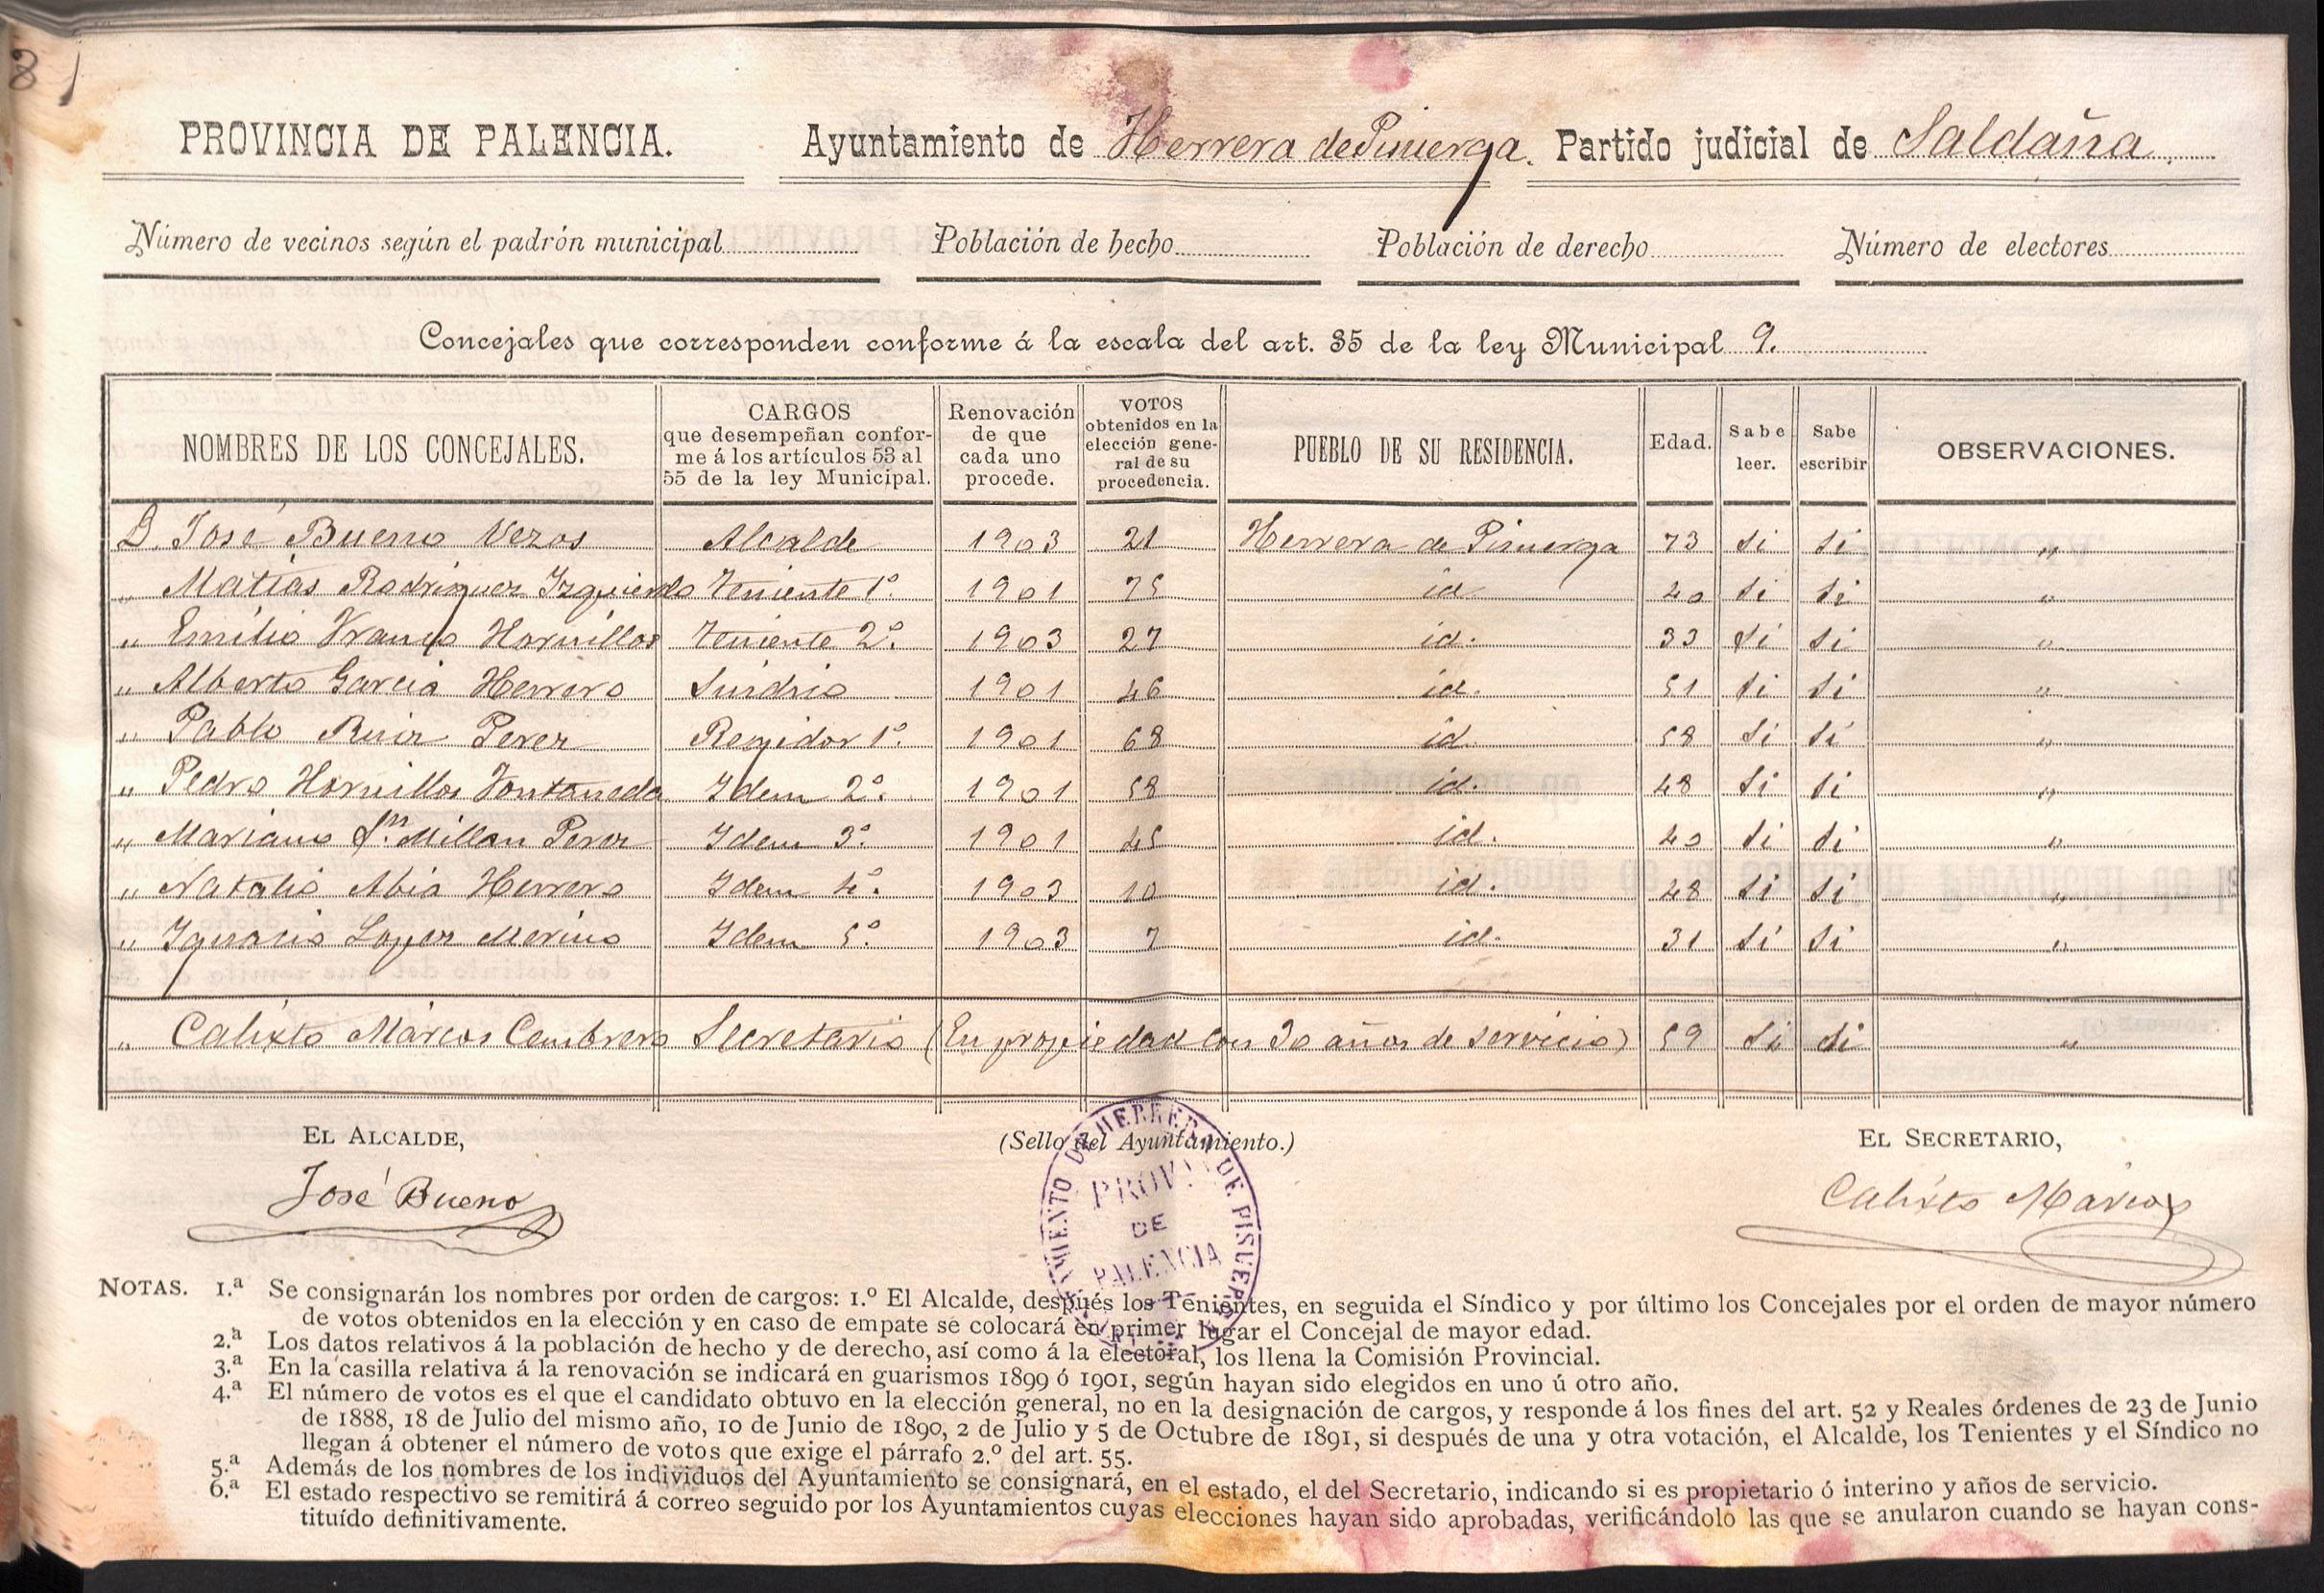 81
PROVINCIA DE PALENCIA. Ayuntamiento de Herrera de Pisuerga. Partido judicial de Saldaña.
Número de vecinos según el padrón municipal Población de hecho Población de derecho Número de electores
Concejales que corresponden conforme á la escala del art. 35 de la ley Municipal 9.
NOMBRES DE LOS CONCEJALES. CARGOS que desempeñan conforme á los artículos 53 al 55 de la ley Municipal. Renovación de que cada uno procede. VOTOS obtenidos en la elección general de su procedencia. PUEBLO DE SU RESIDENCIA. Edad. Sabe leer. Sabe escribir OBSERVACIONES.
D. José Bueno Vezos Alcalde 1903 21 Herrera de Pisuerga 73 Si Si "
" Matias Rodriguez Izquierdo Teniente 1º. 1901 75 id 40 Si Si "
" Emilio Franco Hornillos Teniente 2º. 1903 27 id. 33 Si Si "
" Alberto Garcia Herrero Sindico 1901 46 id. 51 Si Si "
" Pablo Ruiz Perez Regidor 1º. 1901 68 id. 58 Si Si "
" Pedro Hornillos Fontaneda Idem 2º. 1901 58 id. 48 Si Si "
" Mariano Sn. Millan Perez Idem 3º 1901 45 id. 40 Si Si "
" Natalio Abia Herrero Idem 4º. 1903 10 id. 48 Si Si "
" Ignacio Lopez Merino Idem 5º 1903 7 id. 31 Si Si "
" Calixto Márcos Cembrero Secretario (En propiedad con 30 años de servicio) 59 Si Si "
EL ALCALDE, (Sello del Ayuntamiento.) EL SECRETARIO,
José Bueno Calixto Márcos
AYUNTAMIENTO DE HERRERA DE PISUERGA
PROVA.
DE
PALENCIA
NOTAS. 1.ª Se consignarán los nombres por orden de cargos: 1.º El Alcalde, después los Tenientes, en seguida el Síndico y por último los Concejales por el orden de mayor número
de votos obtenidos en la elección y en caso de empate se colocará en primer lugar el Concejal de mayor edad.
2.ª Los datos relativos á la población de hecho y de derecho, así como á la electoral, los llena la Comisión Provincial.
3.ª En la casilla relativa á la renovación se indicará en guarismos 1899 ó 1901, según hayan sido elegidos en uno ú otro año.
4.ª El número de votos es el que el candidato obtuvo en la elección general, no en la designación de cargos, y responde á los fines del art. 52 y Reales órdenes de 23 de Junio
de 1888, 18 de Julio del mismo año, 10 de Junio de 1890, 2 de Julio y 5 de Octubre de 1891, si después de una y otra votación, el Alcalde, los Tenientes y el Síndico no
llegan á obtener el número de votos que exige el párrafo 2.º del art. 55.
5.ª Además de los nombres de los individuos del Ayuntamiento se consignará, en el estado, el del Secretario, indicando si es propietario ó interino y años de servicio.
6.ª El estado respectivo se remitirá á correo seguido por los Ayuntamientos cuyas elecciones hayan sido aprobadas, verificándolo las que se anularon cuando se hayan cons-
tituído definitivamente.